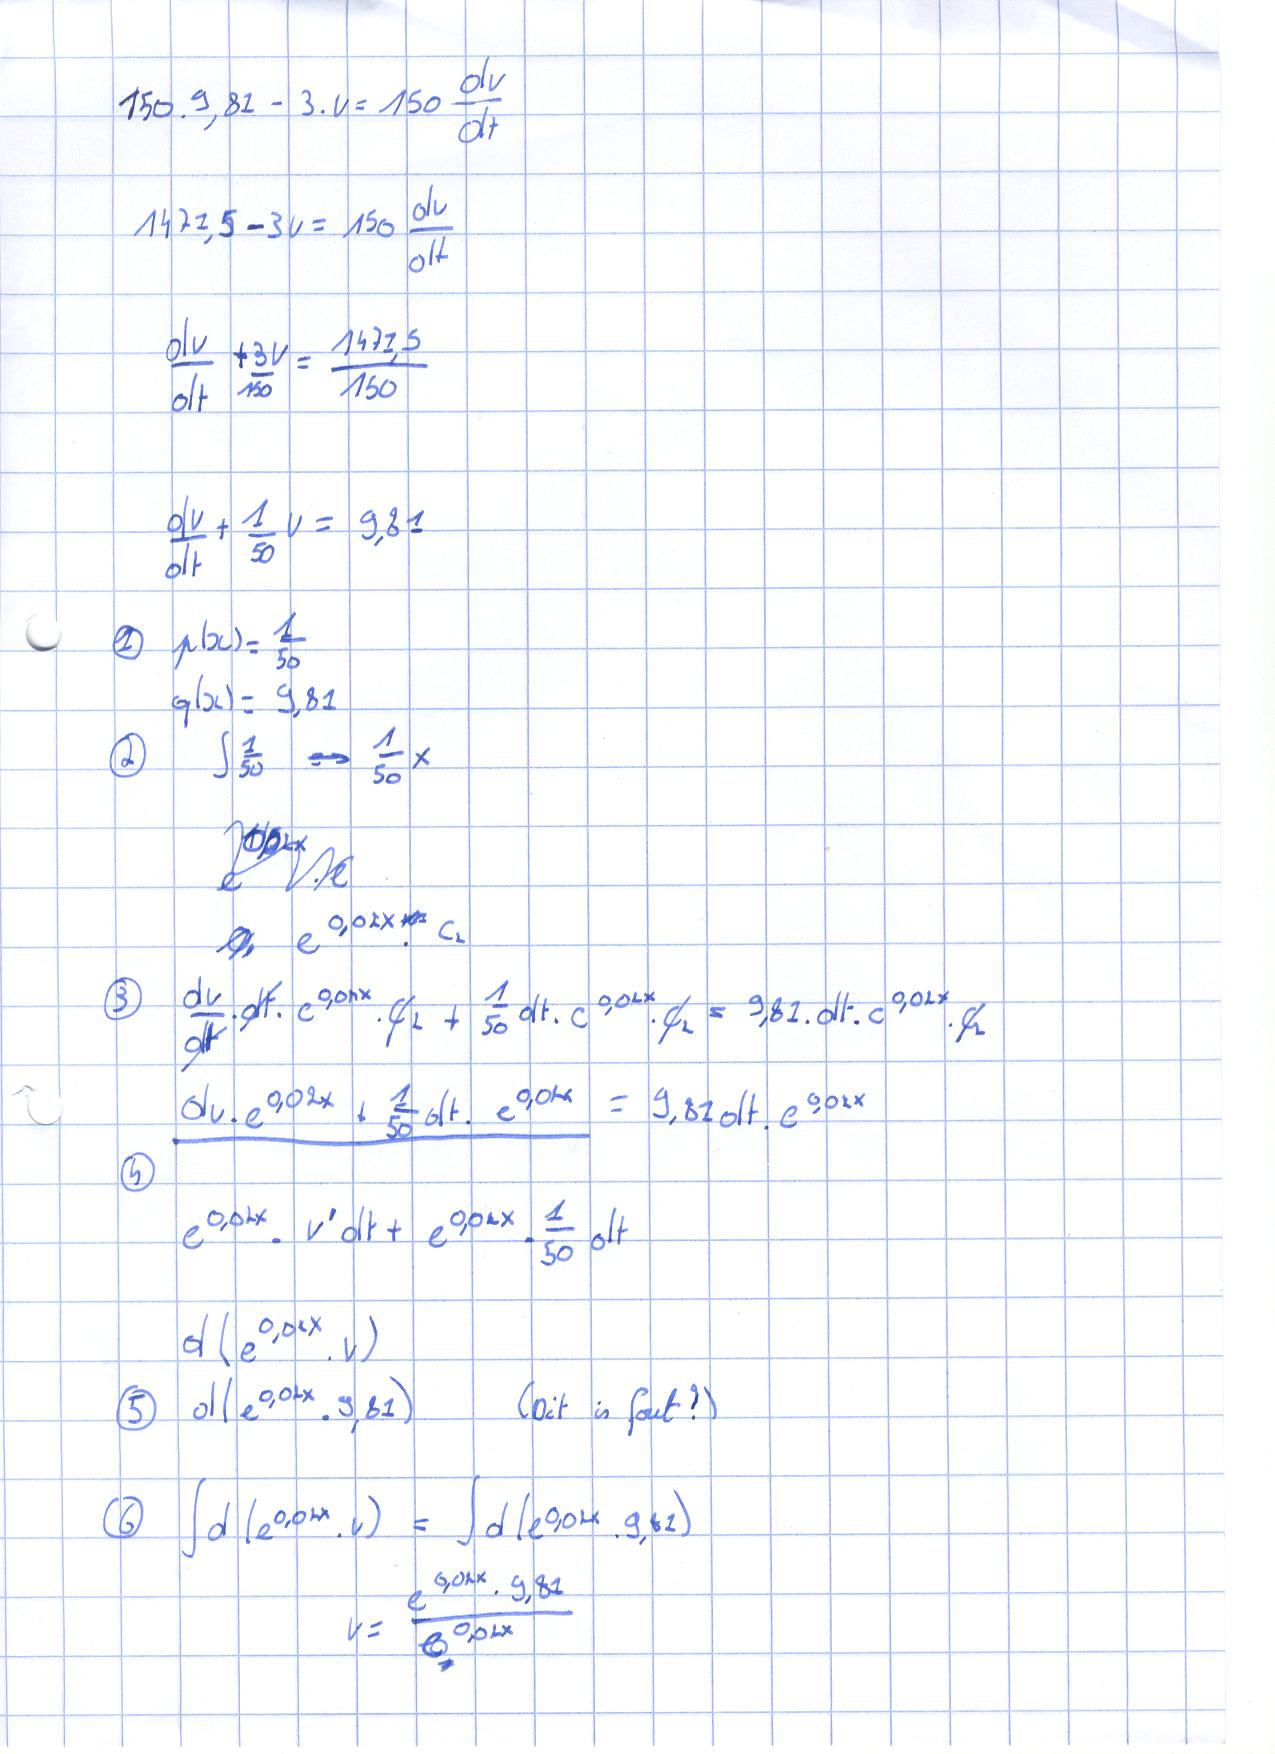 150.9,81 - 3.v = 150 dv/dt
1471,5 - 3v = 150 dv/dt
dv/dt + 3v/150 = 1471,5/150
dv/dt + 1/50 v = 9,81
① p(x) = 1/50
q(x) = 9,81
② ∫ 1/50 → 1/50 x
e^0,02x . c₂
③ dv/dt . dt . e^0,02x . c₂ + 1/50 dt . e^0,02x . c₂ = 9,81 . dt . e^0,02x . c₂
dv . e^0,02x + 1/50 dt . e^0,02x = 9,81 dt . e^0,02x
④
e^0,02x . v' dt + e^0,02x . 1/50 dt
d(e^0,02x . v)
⑤ d(e^0,02x . 9,81) (Dit is fout?)
⑥ ∫ d(e^0,02x . v) = ∫ d(e^0,02x . 9,81)
v = e^0,02x . 9,81 / e^0,02x